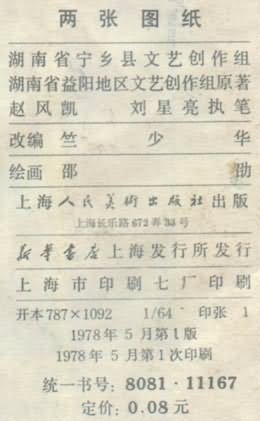 两张图纸
湖南省宁乡县文艺创作组
湖南省益阳地区文艺创作组原著
赵风凯 刘星亮执笔
改编 竺少华
绘画 邵劭
上海人民美术出版社出版
上海长乐路672弄33号
新华书店上海发行所发行
上海市印刷七厂印刷
开本787×1092 1/64 印张 1
1978年5月第1版
1978年5月第1次印刷
统一书号：8081·11167
定价：0.08元